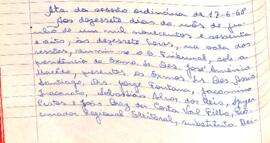 Ata da sessão ordinária de 17-6-68.
Aos dezessete dias do mês de ju-
nho de um mil novecentos e sessenta
e oito, às dezessete horas, na sala das
sessões, reuniu-se o E. Tribunal, sob a
presidência do Exmo. Sr. Des. José Américo
Macêdo, presentes os Exmos. Srs. Des.
Santiago, Drs. Jorge Fontana, Jacomino
Inacarato, Sebastião Alves dos Reis,
e João Braz da Costa Val Filho,
curador Regional Eleitoral, substituto. Dei-